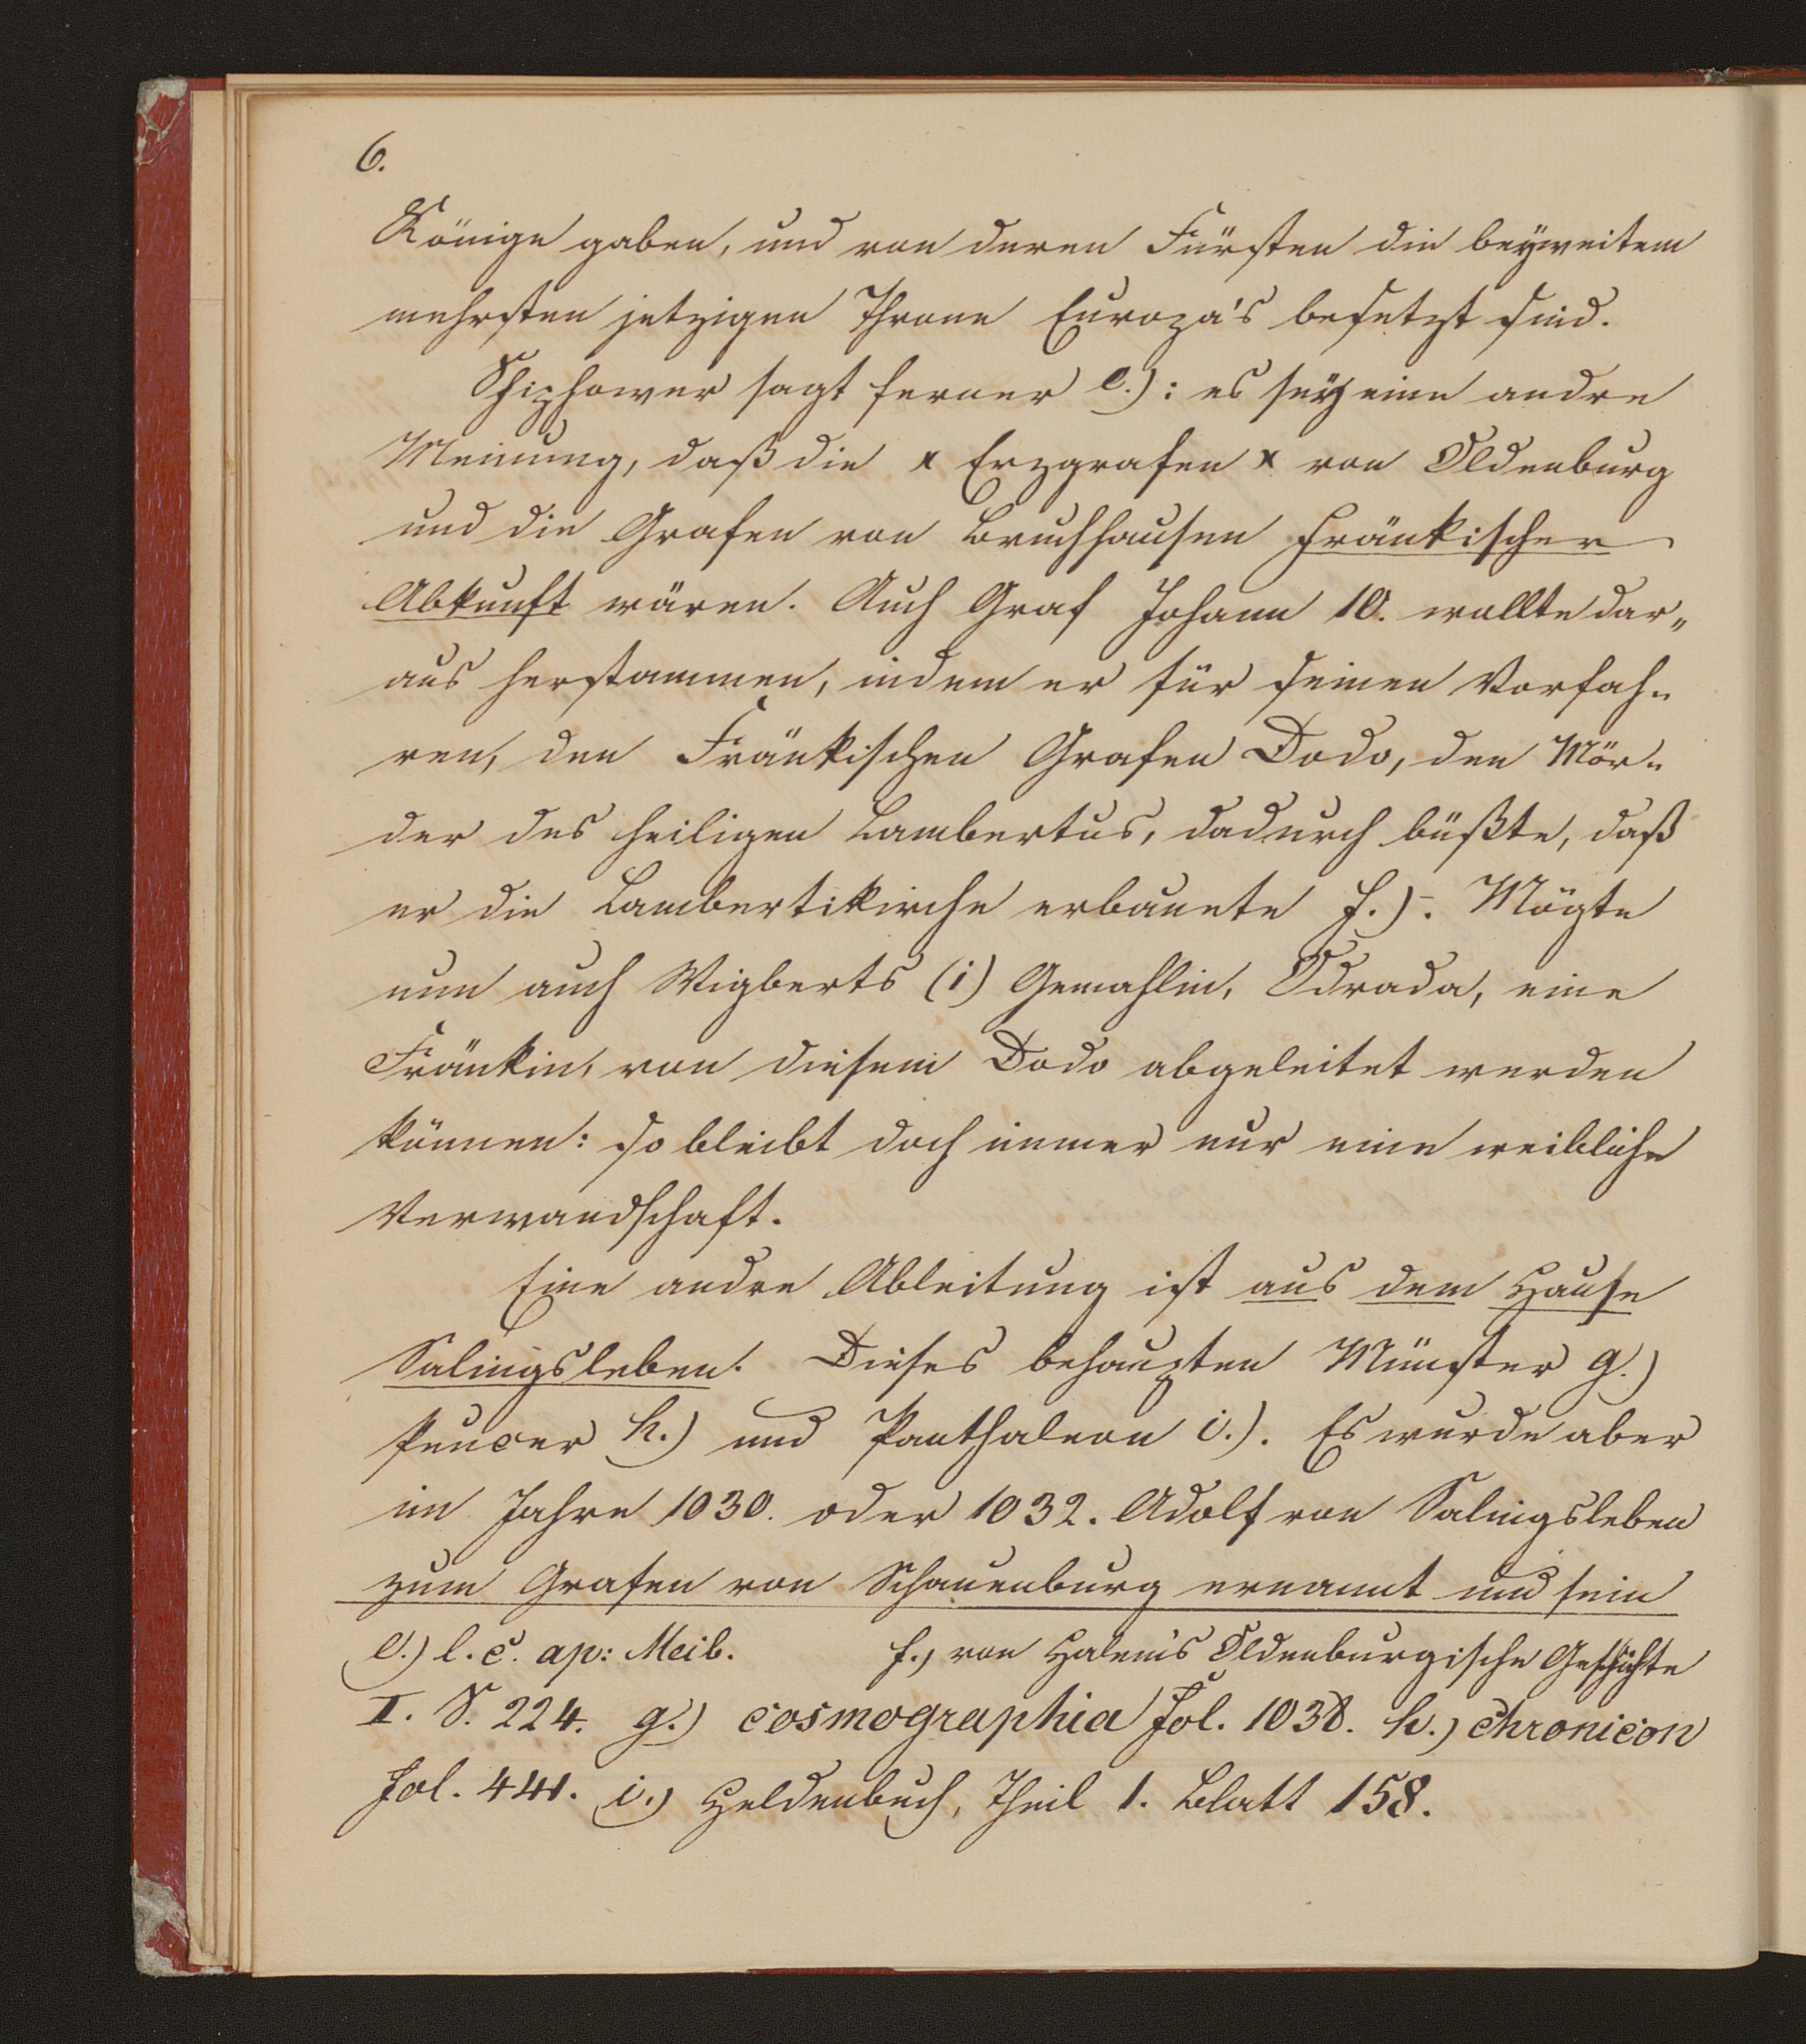 6.
Könige gaben, und von deren Fürsten die beyweitem
mehrsten jetzigen Throne Europa's besetzt sind.
Schiphower sagt ferner e.): es sey eine andre
Meinung, daß die x Erzgrafen x von Oldenburg
und die Grafen von Bruchhausen fränkischer
Abkunft wären. Auch Graf Johann 10. wollte dar„
aus herstammen, indem er für seinen Vorfah-
ren, den Fränkischen Grafen Dodo, den Mör-
der des heiligen Lambertus, dadurch büßte, daß
er die Lambertikirche erbauete f.). Mögte
nun auch Wigberts (i) Gemahlin, Odrada, eine
Fränkin, von diesem Dodo abgeleitet werden
können: so bleibt doch immer nur eine weibliche
Verwandschaft.
Eine andre Ableitung ist aus dem Hause
Salingsleben. Dieses behaupten Münster g.)
Peucer h.) und Panthaleon i.). Es wurde aber
im Jahre 1030. oder 1032. Adolf von Salingsleben
zum Grafen von Schauenburg ernannt und sein
e.) l.c. ap: Meib. f.) von Halem's Oldenburgische Geschichte
I. S. 224. g.) cosmographia fol. 1038. h.) chronicon
fol. 441. i.) Heldenbuch, Theil 1. Blatt 158.